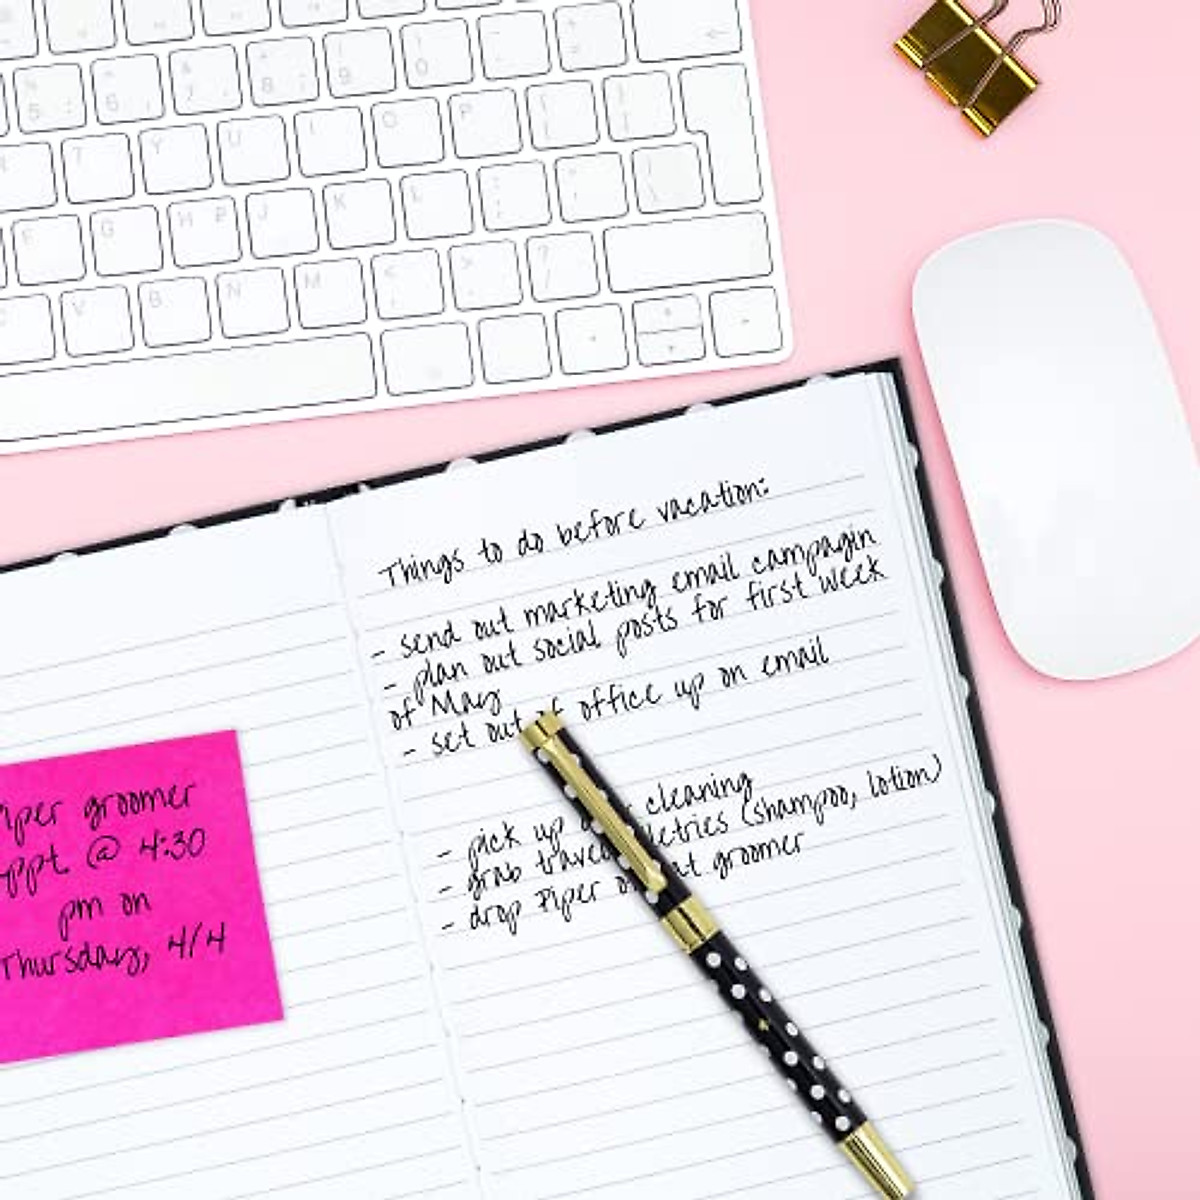 5
6
7
8
9
0
T
Y
U
I
O
P
G
H
J
K
L
V
B
N
M
Things to do before vacation:
- send out marketing email campagin
- plan out social posts for first week
of May
- set out of office up on email
- pick up cleaning
- grab travel (shampoo, lotion)
- drop Piper at groomer
groomer
@ 4:30
pm on
Thursday, 4/4